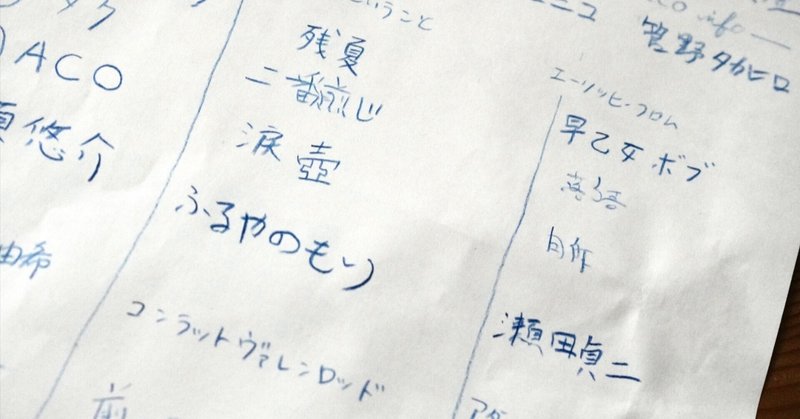 ACO
悠介
由希
いうこと
残夏
二番煎じ
涙壺
ふるやのもり
コンラットヴァレンロッド
前
ニコ
info
菅野タカヒロ
エーリッヒ・フロム
早乙女ボブ
落語
自作
瀬田貞二